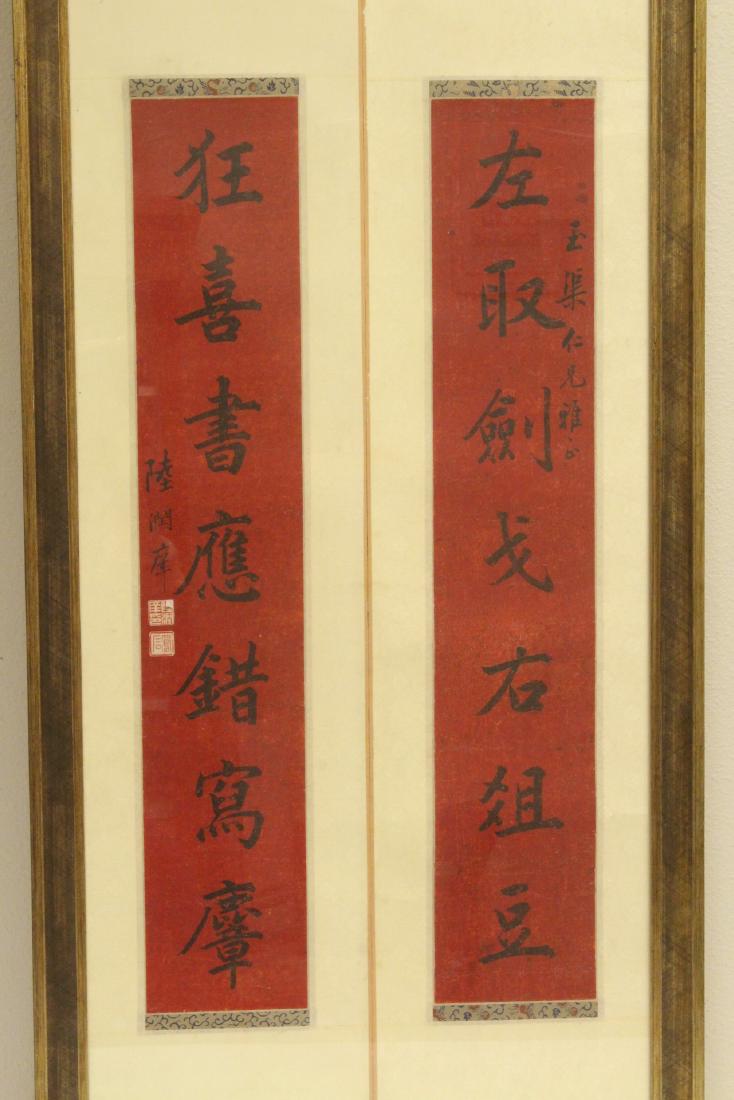 玉渠仁兄雅正
左取劍戈右俎豆
狂喜書應錯寫麞
陸潤庠